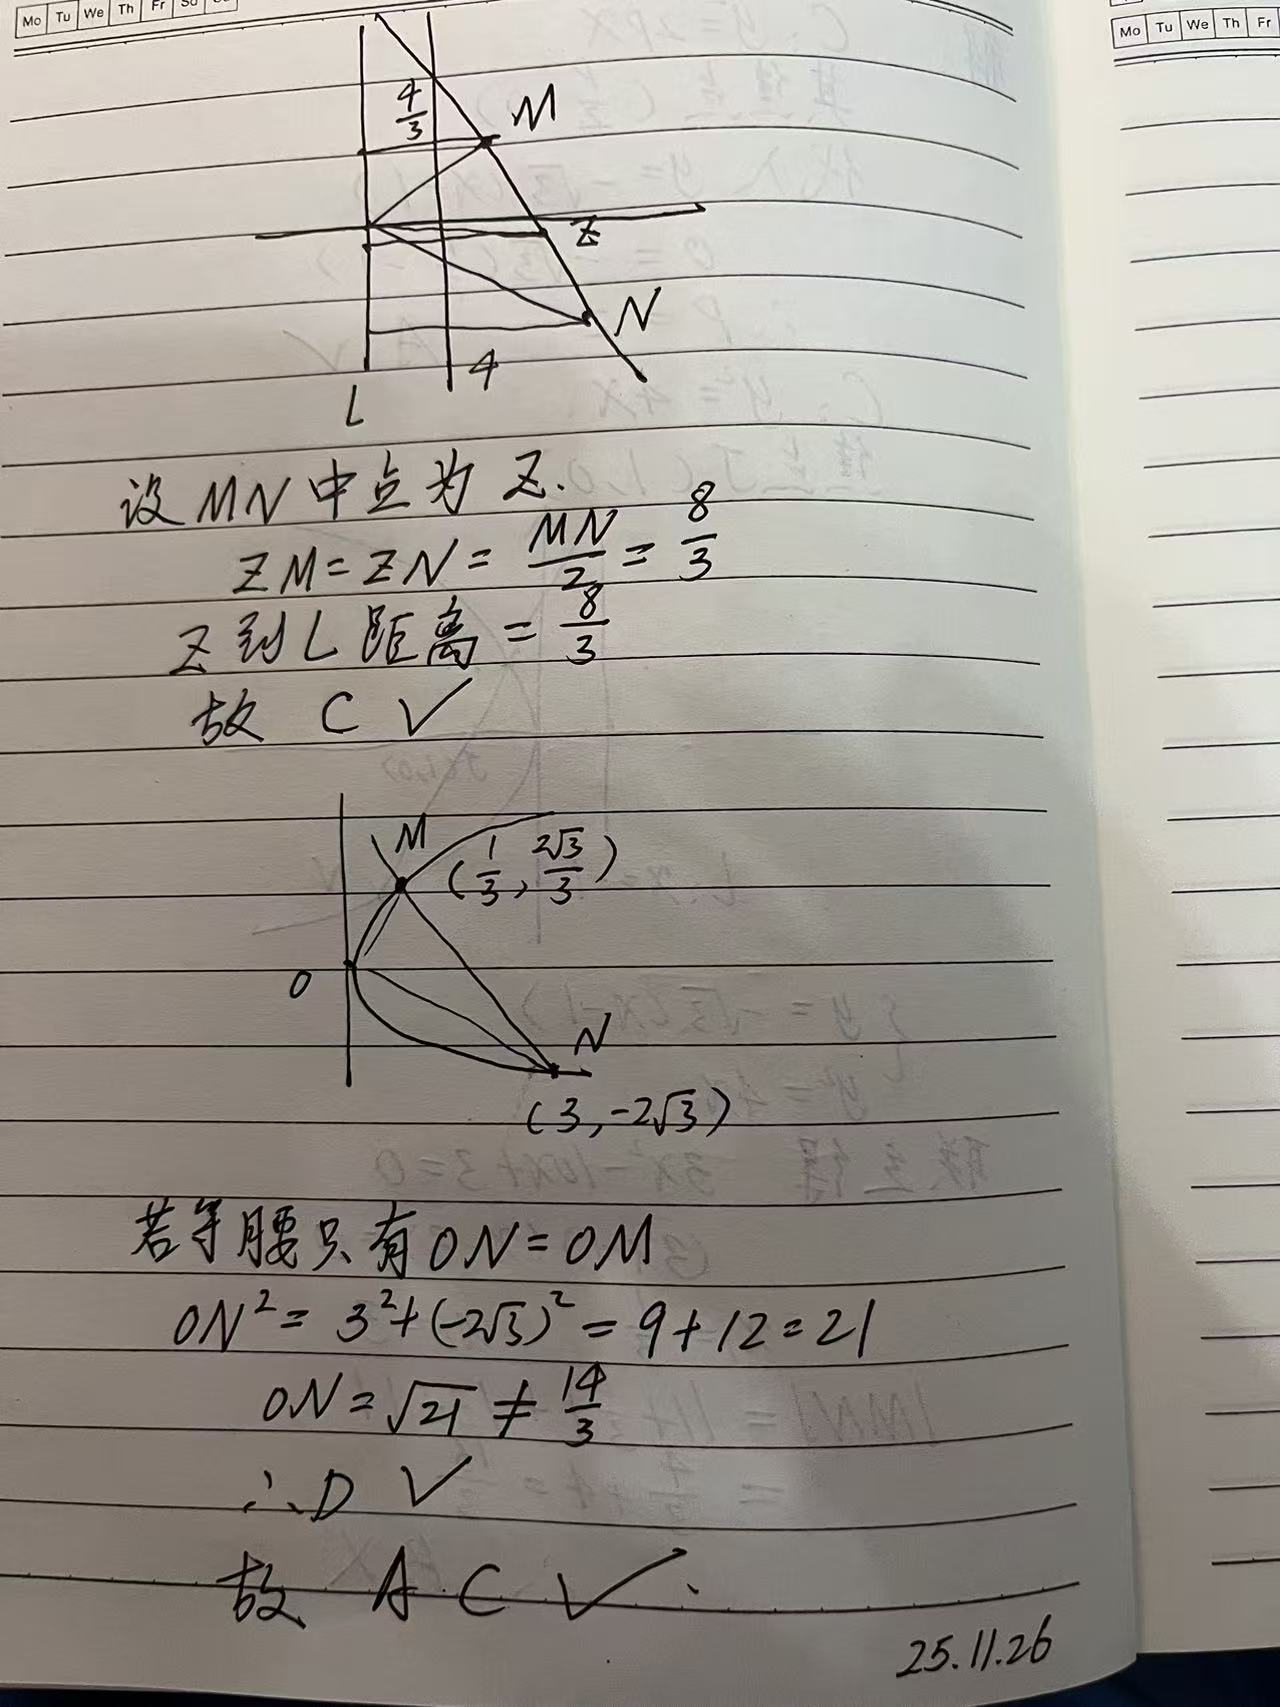 Mo Tu We Th Fr Sa Su
Mo Tu We Th Fr
4/3
M
Z
N
4
L
设MN中点为Z.
ZM=ZN=MN/2=8/3
Z到L距离=8/3
故 C √
M
(1/3, 2√3/3)
O
N
(3,-2√3)
若等腰只有ON=OM
ON²=3²+(-2√3)²=9+12=21
ON=√21≠14/3
∴D √
故 A C √.
25.11.26